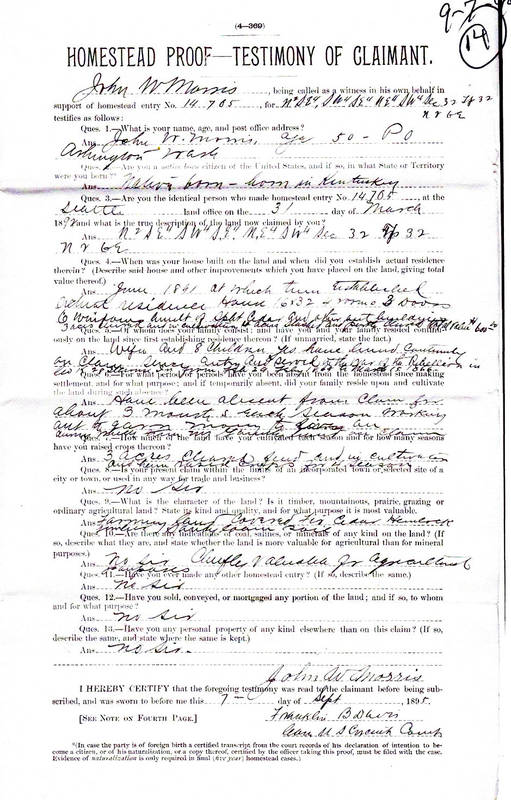 9-7-9
(4—369)
14
HOMESTEAD PROOF—TESTIMONY OF CLAIMANT.
John W. Morris, being called as a witness in his own behalf in
support of homestead entry No. 14705, for N² SE⁴, SW⁴ SE⁴ NE⁴ SW⁴ Sec 32 Tp 32
testifies as follows: N R 6E
Ques. 1.—What is your name, age, and post office address?
Ans. John W. Morris, age 50 - PO
Arlington Wash
Ques. 2.—Are you a native-born citizen of the United States, and if so, in what State or Territory
were you born?*
Ans. Native born - born in Kentucky
Ques. 3.—Are you the identical person who made homestead entry No. 14705, at the
Seattle land office on the 31 day of March
189 and what is the true description of the land now claimed by you?
Ans. N² SE⁴ SW⁴ SE⁴ NE⁴ SW⁴ Sec 32 Tp 32
N R 6E
Ques. 4.—When was your house built on the land and when did you establish actual residence
therein? (Describe said house and other improvements which you have placed on the land, giving total
value thereof.)
Ans. June 1891 at which time Established
actual residence House 16x32 - rooms 3 Doors
6 Windows built of Split Cedar
Ques. 5.—Of whom does your family consist; and have you and your family resided continu-
ously on the land since first establishing residence thereon? (If unmarried, state the fact.)
Ans. Wife and 8 Children yes have lived Continuously
on Claim Since Entry
Ques. 6.—For what period or periods have you been absent from the homestead since making
settlement, and for what purpose; and if temporarily absent, did your family reside upon and cultivate
the land during such absence?
Ans. Have been absent from Claim for
about 3 months Each Season Working
out to
Ques. 7.—How much of the land have you cultivated each season and for how many seasons
have you raised crops thereon?
Ans. 3 acres Cleared and in cultivation
Ques. 8.—Is your present claim within the limits of an incorporated town or selected site of a
city or town, or used in any way for trade and business?
Ans. No Sir
Ques. 9.—What is the character of the land? Is it timber, mountainous, prairie, grazing or
ordinary agricultural land? State its kind and quality, and for what purpose it is most valuable.
Ans. Farming land Covered Fir Cedar Hemlock
Ques. 10.—Are there any indications of coal, salines, or minerals of any kind on the land? (If
so, describe what they are, and state whether the land is more valuable for agricultural than for mineral
purposes.)
Ans. No Sir Chiefly Valuable for Agricultural
purposes
Ques. 11.—Have you ever made any other homestead entry? (If so, describe the same.)
Ans. No Sir
Ques. 12.—Have you sold, conveyed, or mortgaged any portion of the land; and if so, to whom
and for what purpose?
Ans. No Sir
Ques. 13.—Have you any personal property of any kind elsewhere than on this claim? (If so,
describe the same, and state where the same is kept.)
Ans. No Sir.
John W Morris
I HEREBY CERTIFY that the foregoing testimony was read to the claimant before being sub-
scribed, and was sworn to before me this 7- day of Sept, 1895
[SEE NOTE ON FOURTH PAGE.]
Franklin B Davis
Com U S Circuit Court
*(In case the party is of foreign birth a certified transcript from the court records of his declaration of intention to be-
come a citizen, or of his naturalization, or a copy thereof, certified by the officer taking this proof, must be filed with the case.
Evidence of naturalization is only required in final (five year) homestead cases.)